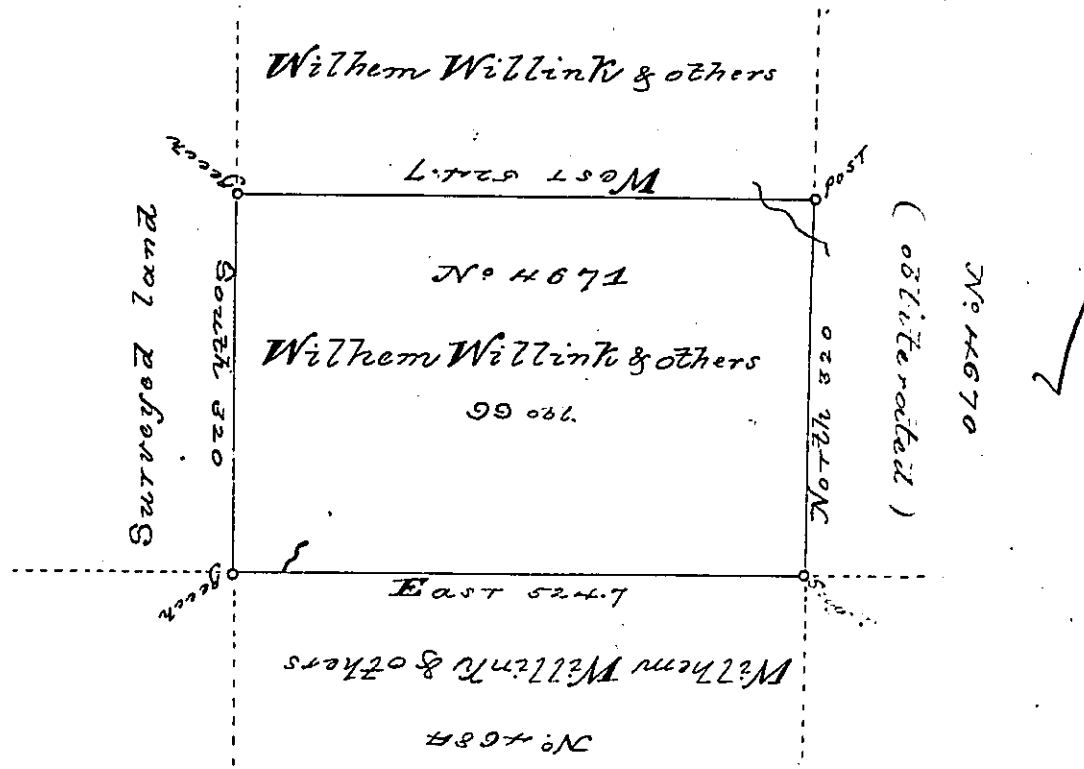 Wilhem Willink & others
Beech
West 524.7
post
Surveyed land
South 320
No 4671
Wilhem Willink & others
990
North 320
(obliterated)
No 4670
Beech
East 524.7
Wilhem Willink & others
No 4684